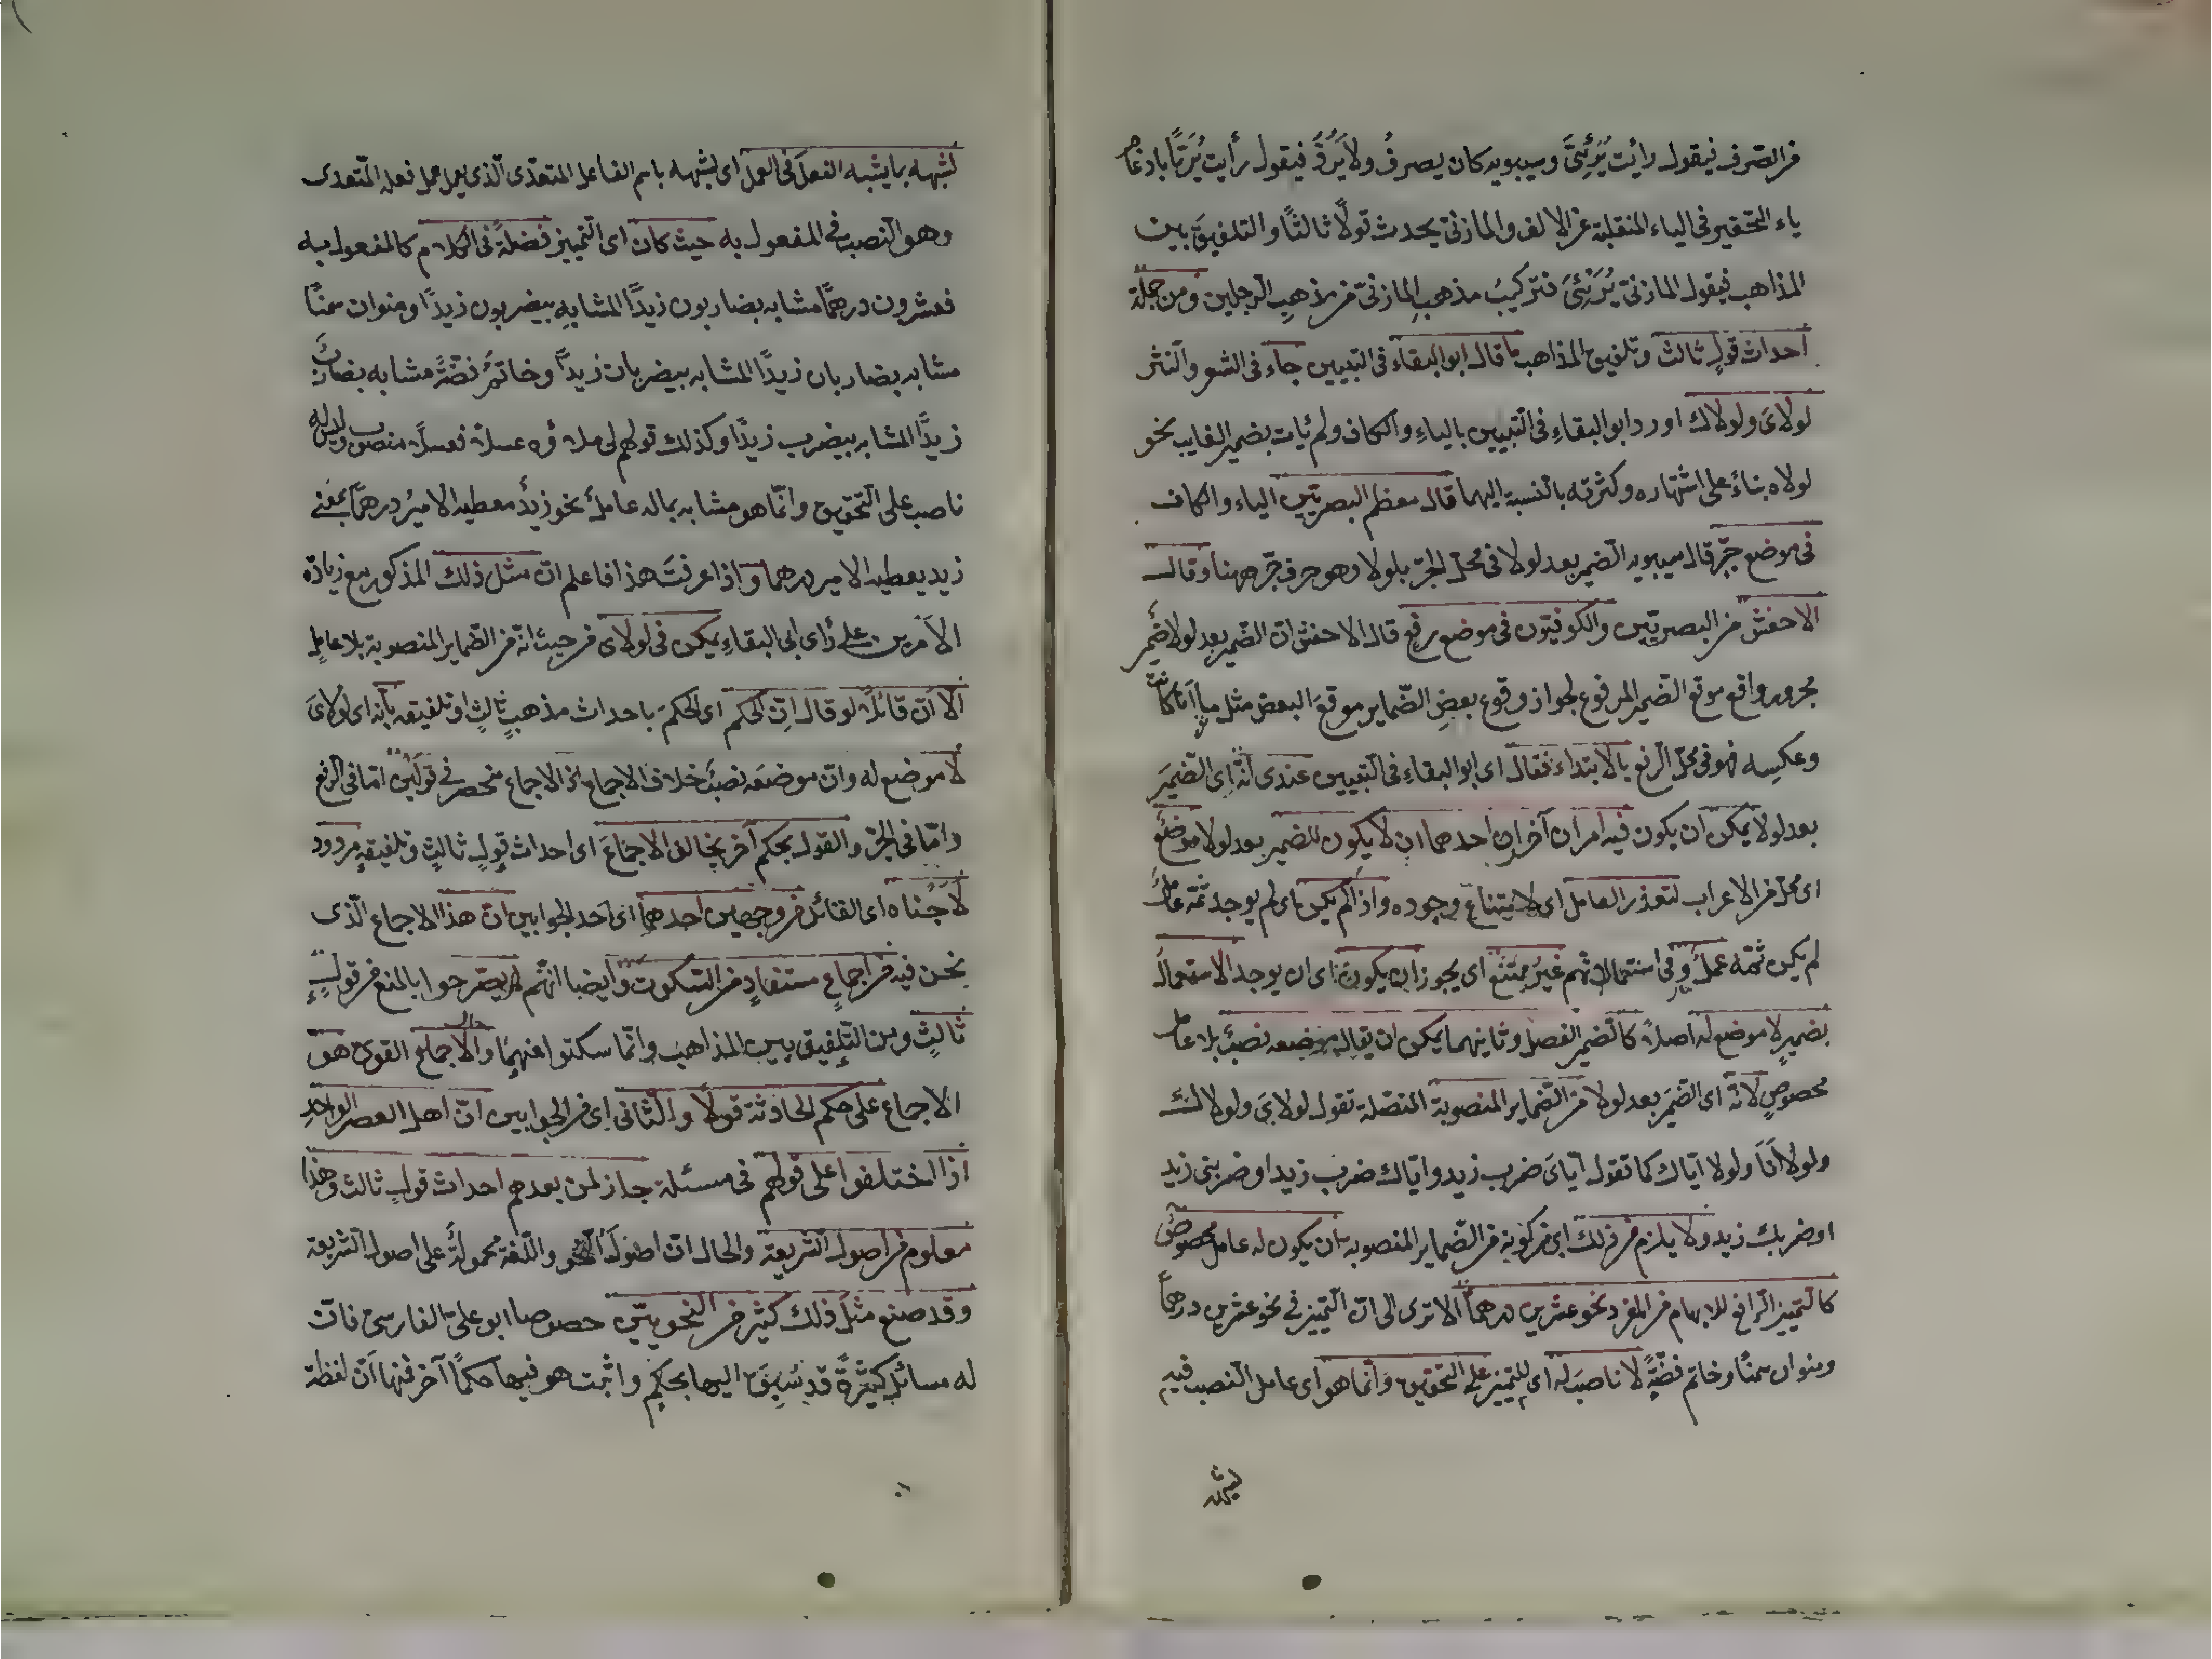 من الصرف فيقول رأيت يُرَيْئِيَ وسيبويه كان يصرفُ ولا يَرُدُّ فيقول رأيت يُرَيًّا بادغام
ياء التحقير فى الياء المنقلبة عن الالف والمازنى يحدث قولًا ثالثًا والتلفيقَ بين
المذاهب فيقول المازنى يُرَيْئِىَ فتركيبُ مذهبِ المازنىّ من مذهبِ الرجلين ومن جملة
احداث قولٍ ثالث وتلفيق المذاهب ما قال ابو البقاء فى التبيين جاء فى الشعر والنثر
لولاىَ ولولاك اورد ابو البقاءِ فى التبيين بالياءِ والكاف ولم يأت بضمير الغايب نحو
لولاه بناءً على اشتهاره وكثرته بالنسبة اليهما قال معظم البصريّين الياء والكاف
فى موضع جرّ قال سيبويه الضمير بعد لولا فى محل الجرّ بلولا وهو حرف جرّ ههنا وقال
الاخفش من البصريّين والكوفيّون فى موضع رفعٍ قال الاخفش انّ الضمير بعد لولا ضمير
مجرور واقع موقع الضمير المرفوع لجواز وقوع بعضِ الضّماير موقعَ البعض مثل ما انا كانت
وعكسِه فهو فى محلّ الرفع بالابتداء فقال اى ابو البقاءِ فى التبيين عندى انّه اى الضميرَ
بعد لولا يمكن ان يكون فيه امران آخران احدهما ان لا يكون للضمير بعد لولا موضعٌ
اى محلّ من الاعراب لتعذر العامل اى لامتناع وجوده واذا لم يكن اى لم يوجد ثمّه عاملٌ
لم يكن ثمّه عملٌ وفى استعمالاتهم غيرُ ممتنع اى يجوز ان يكون اى ان يوجد الاستعمال
بضميرٍ لا موضع له اصلا كالضمير الفصل وثانيهما يمكن ان يقال موضعه نصبٌ بلا عامل
مخصوصٍ لانّه اى الضمير بعد لولا من الضماير المنصوبة المتصلة تقول لولاىَ ولولاك
ولولا انا ولولا ايّاك كما تقول ايّاىَ ضرب زيد وايّاك ضرب زيد او ضربنى زيد
او ضربك زيد ولا يلزم من ذلك اى من كونه من الضماير المنصوبه بان يكون له عامل مخصوص
كالتمييز الرافع للابهام من المفرد نحو عشرين درهمًا الا ترى الى انّ التمييز فى نحو عشرين درهمًا
ومنوان سمنًا وخاتم فضّةً لا ناصبَ له اى للتمييز على التحقيق وانّما هو اى عامل النصب فيه
ليشبهه
لشبهه بما يشبه الفعلَ فى العمل اى لشبهه باسم الفاعل المتعدّى الّذى يعمل عمل فعله المتعدى
وهو النصب فى المفعول به حيث كان اى التمييز فضلةً فى الكلام كالمفعول به
فعشرون درهمًا مشابه بضاربون زيدًا المشابهِ بيضربون زيدًا ومنوان سمنًا
مشابه بضاربان زيدًا المشابه بيضربان زيدًا وخاتمٌ فضّةً مشابه بضاربٌ
زيدًا المشابه بيضرب زيدًا وكذلك قولهم لى ملاؤه عسلا فعسلًا منصوب وليس له
ناصب على التحقيق وانّما هو مشابه بماله عاملٌ نحو زيدٌ معطيه الاميرُ درهمًا بمعنى
زيد يعطيه الامير درهما واذا عرفتَ هذا فاعلم انّ مثل ذلك المذكور مع زيادة
الامرين على رأى ابى البقاءِ يمكن فى لولاى من حيث انّه من الضماير المنصوبة بلا عاملٍ
الا انّ قائلًا لو قال انّ الحكم اى الحكمَ باحداث مذهبٍ ثالثٍ او تلفيقه بانّه اى لولاىَ
لا موضع له وانّ موضعَه نصبٌ خلاف الاجماع اذ الاجماع منحصر فى قولَين امّا فى الرفع
وامّا فى الجرّ والقول بحكم آخر يخالف الاجماعَ اى احداث قولٍ ثالثٍ وتلفيقه مردود
لاجبناه اى القائل من وجهين احدهما اى احد الجوابين انّ هذا الاجماع الّذى
نحن فيه من اجماعٍ مستفادٍ من السكوت وايضا انّهم لم يصرّحوا بالمنع من قولٍ
ثالثٍ ومن التلفيق بين المذاهب وانّما سكتوا عنهما والاجماع القوىّ هو
الاجماع على حكم الحادثة قولًا والثانى اى من الجوابين انّ اهل العصر الواحدِ
اذا اختلفوا على قولهم فى مسئلة جاز لمن بعدهم احداث قولٍ ثالث وهذا
معلوم من اصول الشريعة والحال انّ اصولَ النحو واللغة محمولةٌ على اصول الشريعة
وقد صنع مثلَ ذلك كثير من النحويّين خصوصا ابو علىّ الفارسىّ فانّ
له مسائل كثيرةً قد سُبِقَ اليها بحكمٍ واثبت هو فيها حكمًا آخر فمنها انّ لفظة